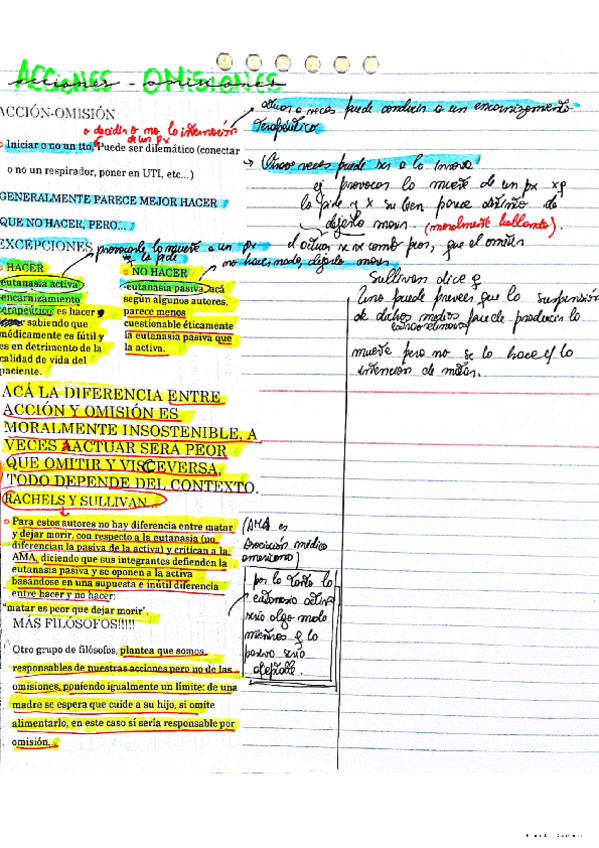 ACCIONES - OMISIONES
ACCIÓN-OMISIÓN
o decidir o no la intención de un px
Iniciar o no un tto. Puede ser dilemático (conectar
o no un respirador, poner en UTI, etc...)
GENERALMENTE PARECE MEJOR HACER
QUE NO HACER, PERO...
EXCEPCIONES
provocarle la muerte a un px q la pide
no haces nada, dejarlo morir
actuar a veces puede conducir a un encarnizamiento
Terapéutico
→ Otras veces puede ser a la inversa
ej provocar la muerte de un px xq
la pide y x su bien parece distinto de
dejarlo morir. (moralmente hablando).
el actuar se ve como peor, que el omitir
HACER
eutanasia activa
encarnizamiento
terapéutico es hacer
sabiendo que
médicamente es fútil y
es en detrimento de la
calidad de vida del
paciente.
NO HACER
eutanasia pasiva, acá
según algunos autores,
parece menos
cuestionable éticamente
la eutanasia pasiva que
la activa.
Sullivan dice q
Uno puede preveer que la suspensión
de dichos medios puede producir la
extraordinarios
muerte pero no se lo hace c/ la
intención de matar.
ACÁ LA DIFERENCIA ENTRE
ACCIÓN Y OMISIÓN ES
MORALMENTE INSOSTENIBLE. A
VECES AACTUAR SERÁ PEOR
QUE OMITIR Y VISCEVERSA,
TODO DEPENDE DEL CONTEXTO.
RACHELS Y SULLIVAN...
Para estos autores no hay diferencia entre matar
y dejar morir, con respecto a la eutanasia (no
diferencian la pasiva de la activa) y critican a la
AMA, diciendo que sus integrantes defienden la
eutanasia pasiva y se oponen a la activa
basándose en una supuesta e inútil diferencia
entre hacer y no hacer:
"matar es peor que dejar morir".
(AMA es
Asociación médica
americana)
por lo tanto la
eutanasia activa
sería algo malo
mientras q la
pasiva sería
aceptable.
MÁS FILÓSOFOS!!!!!
Otro grupo de filósofos, plantea que somos
responsables de nuestras acciones pero no de las
omisiones, poniendo igualmente un límite: de una
madre se espera que cuide a su hijo, si omite
alimentarlo, en este caso sí sería responsable por
omisión...